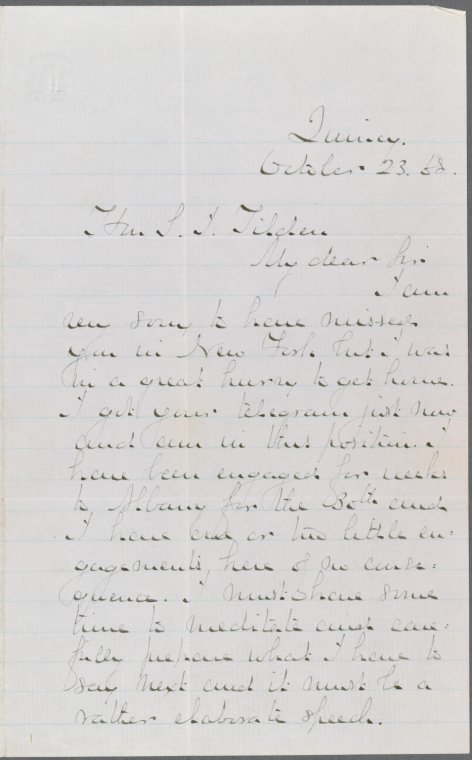 Quincy.
October 23. 68.
Hon S. J. Tilden
My dear Sir
I am
very sorry to have missed
you in New York but I was
in a great hurry to get home.
I got your telegram just now
and am in this position. I
have been engaged for weeks
to Albany for the 30th and
I have one or two little en=
gagements, here of no conse=
quence. I must have some
time to meditate and care=
fully prepare what I have to
say next and it must be a
rather elaborate speech.